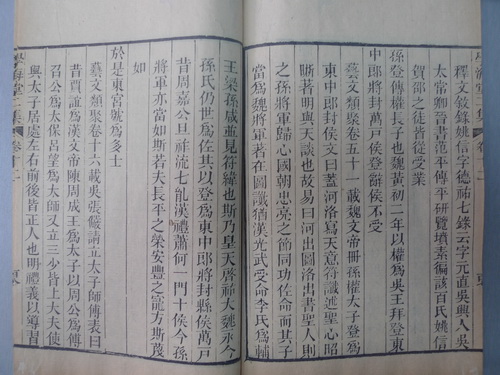 學海堂二集 卷十二
釋文敘錄姚信字德祐七錄云字元直吳興人吳
太常卿晉書范平傳平研覽墳素徧該百氏姚信
賀邵之徒皆從受業
孫登傳權長子也魏黃初二年以權爲吳王拜登東
中郎將封萬戶侯登辭侯不受
藝文類聚卷五十一載魏文帝冊孫權太子登爲
東中郎將封侯文曰蓋河洛寫天意符讖述聖心昭
晰著明與天談也故易曰河出圖洛出書聖人則
之孫將軍歸心國朝忠亮之節同功佐命而其子
當爲魏將軍著在圖讖猶漢光武受命李氏爲輔
王梁孫咸並見符緯也斯乃皇天啓祐大魏永令
孫氏仍世爲佐其以登爲東中郎將封縣侯萬戶
昔周嘉公旦祚流七胤漢禮蕭何一門十侯今孫
將軍亦當如斯若夫長平之榮安豐之寵方斯蔑
如
於是東宮號爲多士
藝文類聚卷十六載吳張儼請立太子師傅表曰
昔賈誼爲漢文帝陳周成王爲太子以周公爲傅
召公爲太保呂望爲太師又立三少皆上大夫使
與太子居處左右前後皆正人也明禮義以導習
學海堂二集 卷十二